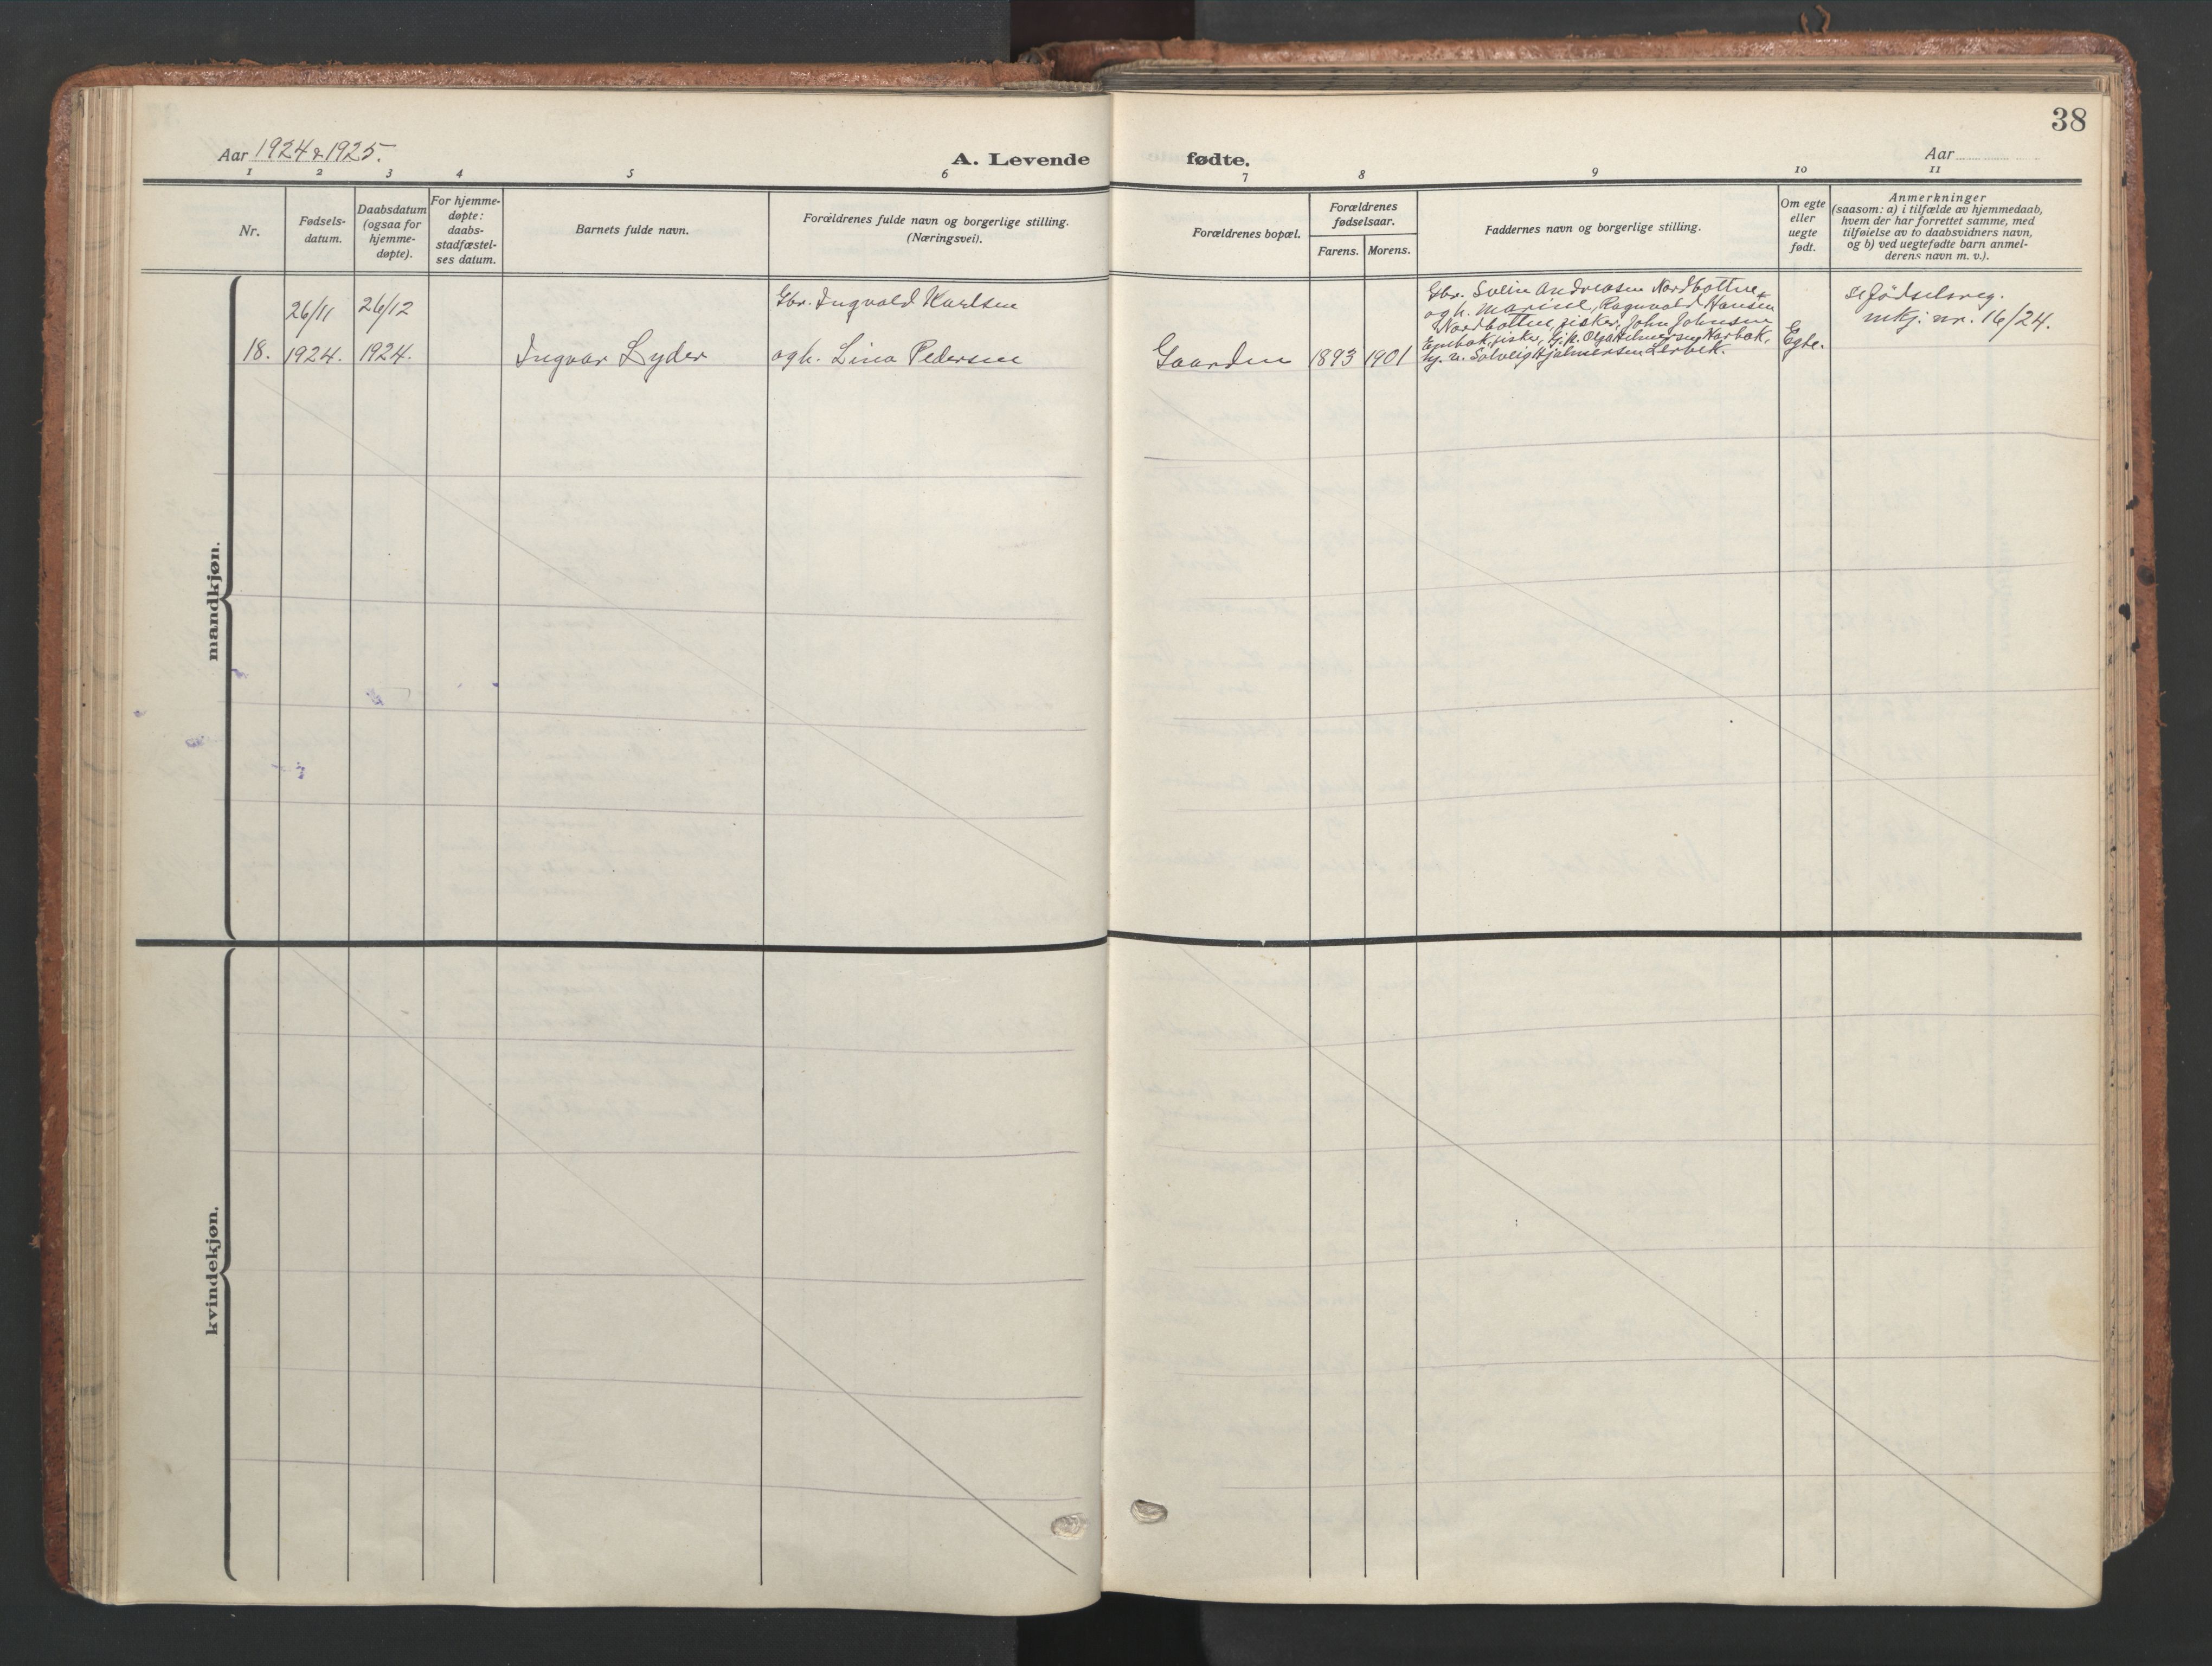 38
Aar 1924 & 1925.
A. Levende fødte.
Aar
1 2 3 4 5 6 7 8 9 10 11
Nr.
Fødsels-
datum.
Daabsdatum
(ogsaa for
hjemme-
døpte).
For hjemme-
døpte:
daabs-
stadfæstel-
ses datum.
Barnets fulde navn.
Forældrenes fulde navn og borgerlige stilling.
(Næringsvei).
Forældrenes bopæl.
Forældrenes
fødselsaar.
Farens. Morens.
Faddernes navn og borgerlige stilling.
Om egte
eller
uegte
født.
Anmerkninger
(saasom: a) i tilfælde av hjemmedaab,
hvem der har forrettet samme, med
tilføielse av to daabsvidners navn,
og b) ved uegtefødte barn anmel-
derens navn m. v.).
mandkjøn.
18.
26/11
1924.
26/12
1924.
Ingvar Lyder
Gbr. Ingvald Karlsen
og h. Lina Pedersen
Gaarden
1893
1901
Gbr. Andreasen Nordbottne
og h. Marine, Ragnvald Hansen
Nordbottne, fisker, John Johnsen
fisker, Olga
Solveig Hjalmersen
Egte.
se fødselsreg.
mkj. nr. 16/24.
kvindekjøn.